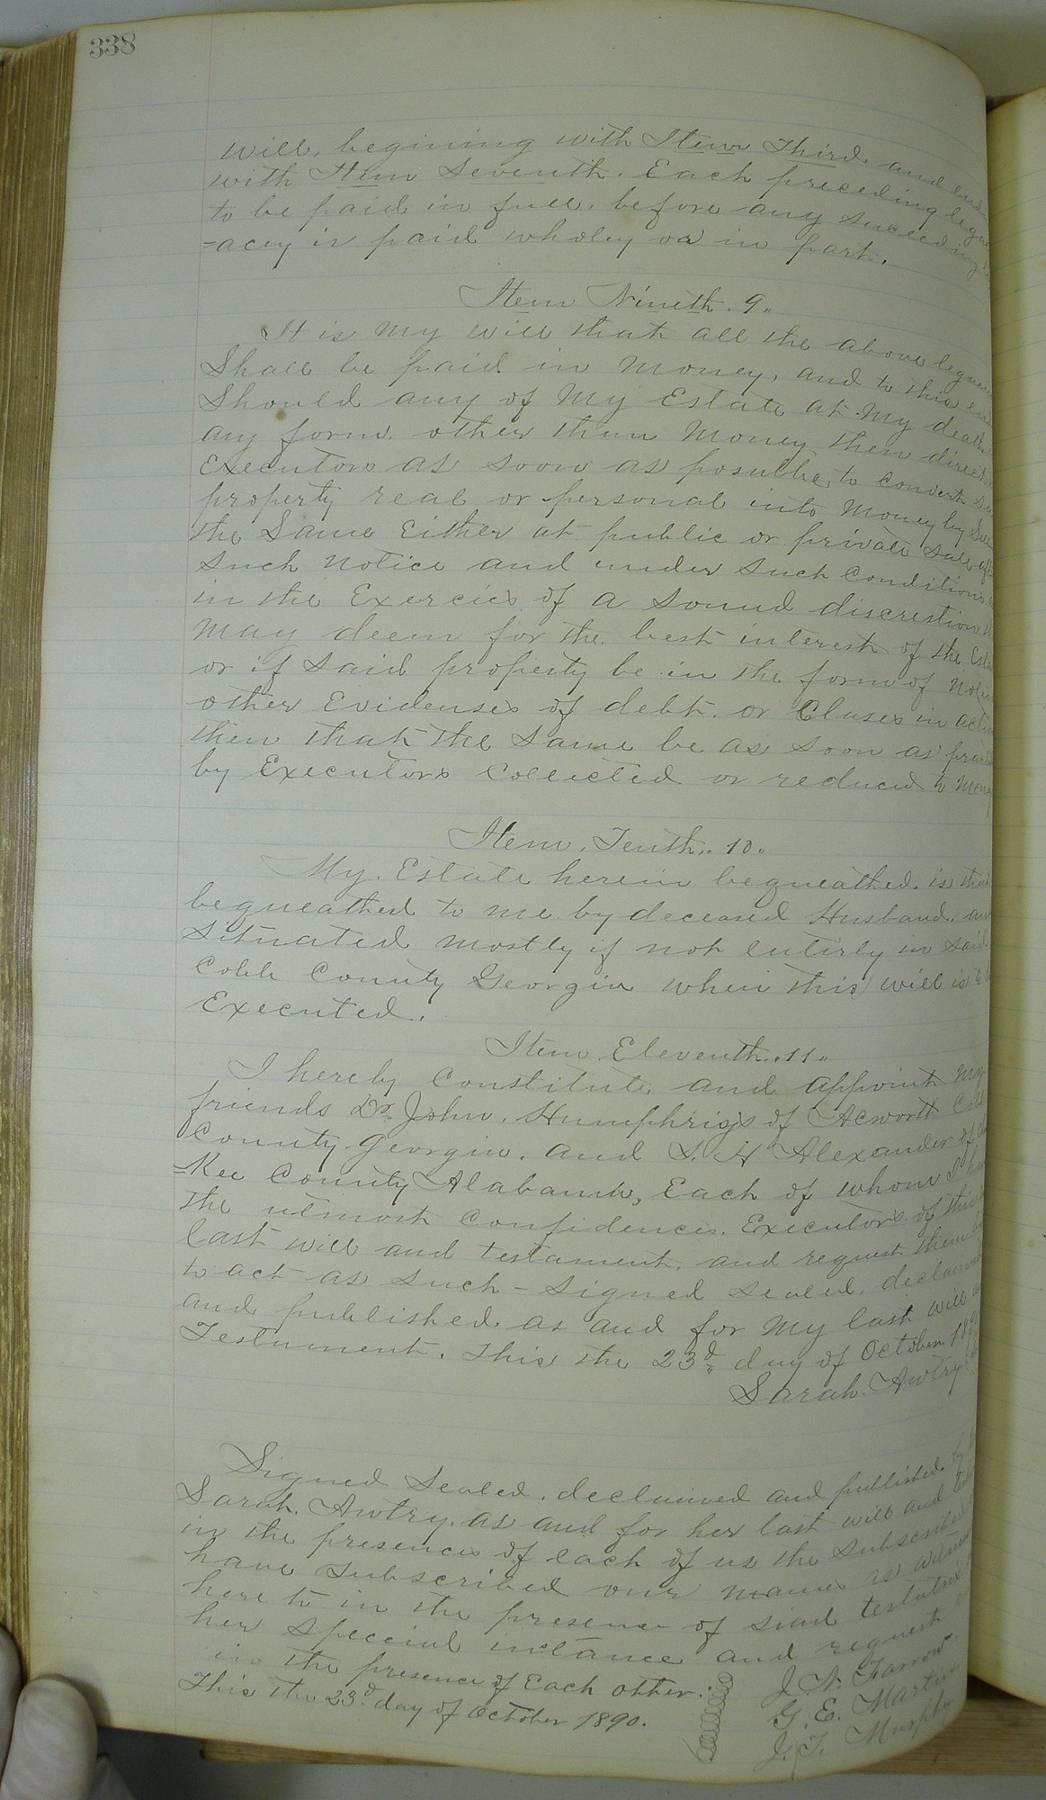 338
will, begining with Item Third and
with Item Seventh. Each preceding
to be paid in full, before any succeeding
=acy is paid wholey or in part.
Item Nineth. 9.
It is my will that all the above
Shall be paid in Money, and to this
Should any of My Estate at My death
any form other than Money then direct
Executors as soon as possible, to convert
property real or personal into Money by
the Same Either at public or private sale
Such Notice and under Such Conditions
in the Exercies of a Sound discrestion
May deem for the best interest of the
or if Said property be in the form of
other Evidenses of debt or Choses in
then that the Same be as soon as
by Executors Collected or reduced to
Item. Tenth.. 10.
My. Estate herein bequeathed is
bequeathed to me by deceased Husband.
Situated mostly if not entirly in said
Cobb County Georgia when this will is
Executed.
Item Eleventh. .11.
I hereby Constitute and appoint My
friends Dr. John. Humphrigs of Acworth
County Georgia. and S. H Alexander of
=Kee County Alabama, Each of whom I
the utmost Confidences. Executors of this
last will and testament, and request them
to act as such - Signed Sealed, declaired
and published as and for My last will
Testament. this the 23d day of October
Sarah. Awtry
Signed Sealed. declaired and published by
Sarah. Awtry. as and for her last will and
in the presence of each of us the
have Subscribed our names as
here to in the presence of siad testatrix
her special instance and request
in the presence of Each other.
This the 23d day of October 1890.
J. N. Farrow
G. E. Martin
J. T. Murphy